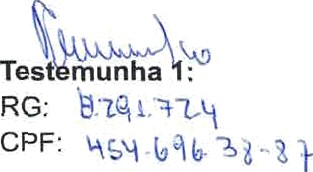 Testemunha 1:
RG: 8.291.724
CPF: 454.696.38-87